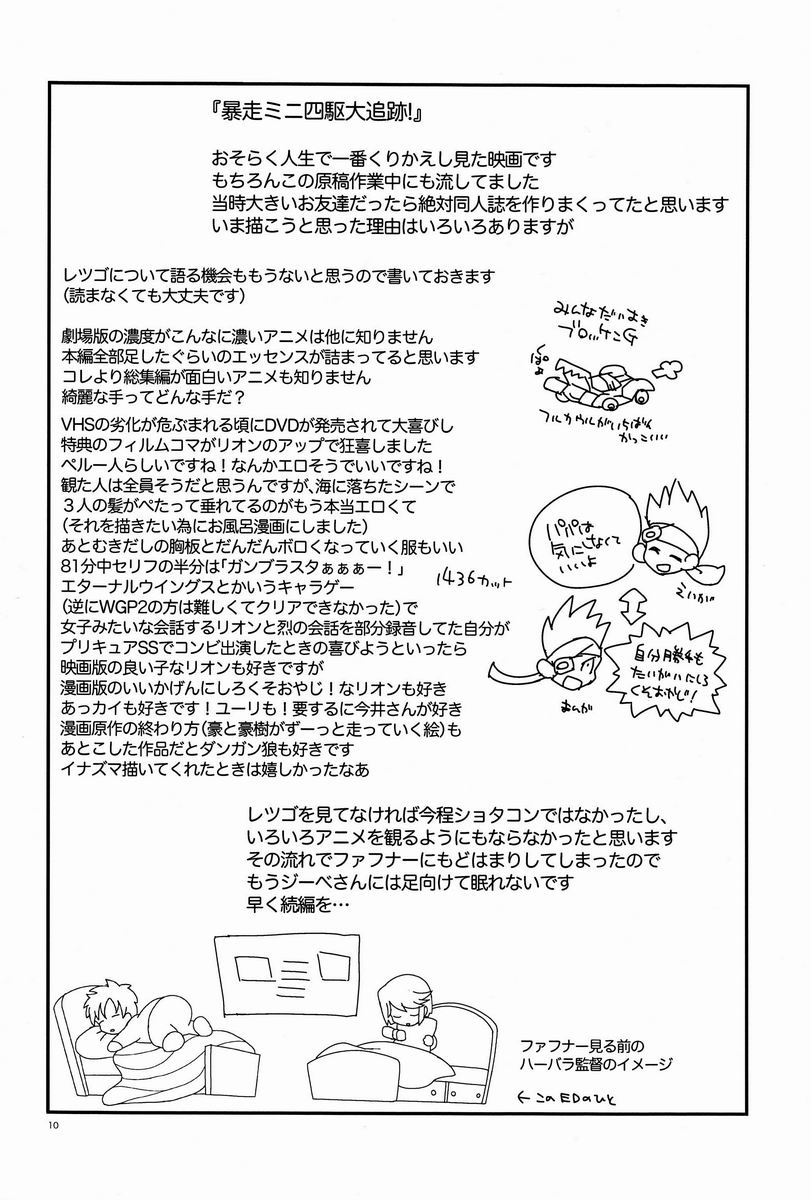 『暴走ミニ四駆大追跡!』
おそらく人生で一番くりかえし見た映画です
もちろんこの原稿作業中にも流してました
当時大きいお友達だったら絶対同人誌を作りまくってたと思います
いま描こうと思った理由はいろいろありますが
レツゴについて語る機会ももうないと思うので書いておきます
(読まなくても大丈夫です)
劇場版の濃度がこんなに濃いアニメは他に知りません
本編全部足したぐらいのエッセンスが詰まってると思います
コレより総集編が面白いアニメも知りません
綺麗な手ってどんな手だ？
みんなだいすき
ブロッケンG
フルカウルがいちばん
かっこいい
VHSの劣化が危ぶまれる頃にDVDが発売されて大喜びし
特典のフィルムコマがリオンのアップで狂喜しました
ペルー人らしいですね！なんかエロそうでいいですね！
観た人は全員そうだと思うんですが、海に落ちたシーンで
３人の髪がぺたって垂れてるのがもう本当エロくて
(それを描きたい為にお風呂漫画にしました)
あとむきだしの胸板とだんだんボロくなっていく服もいい
81分中セリフの半分は「ガンブラスタぁぁぁー！」
1436カット
エターナルウイングスとかいうキャラゲー
(逆にWGP2の方は難しくてクリアできなかった)で
女子みたいな会話するリオンと烈の会話を部分録音してた自分が
プリキュアSSでコンビ出演したときの喜びようといったら
映画版の良い子なリオンも好きですが
漫画版のいいかげんにしろくそおやじ！なリオンも好き
あっカイも好きです！ユーリも！要するに今井さんが好き
漫画原作の終わり方(豪と豪樹がずーっと走っていく絵)も
あとこした作品だとダンガン狼も好きです
イナズマ描いてくれたときは嬉しかったなあ
パパは
気にしなくて
いいよ
えいが
自分勝手も
たいがいにしろ
くそおやじ！
まんが
レツゴを見てなければ今程ショタコンではなかったし、
いろいろアニメを観るようにもならなかったと思います
その流れでファフナーにもどはまりしてしまったので
もうジーベさんには足向けて眠れないです
早く続編を…
ファフナー見る前の
ハーバラ監督のイメージ
←このEDのひと
10